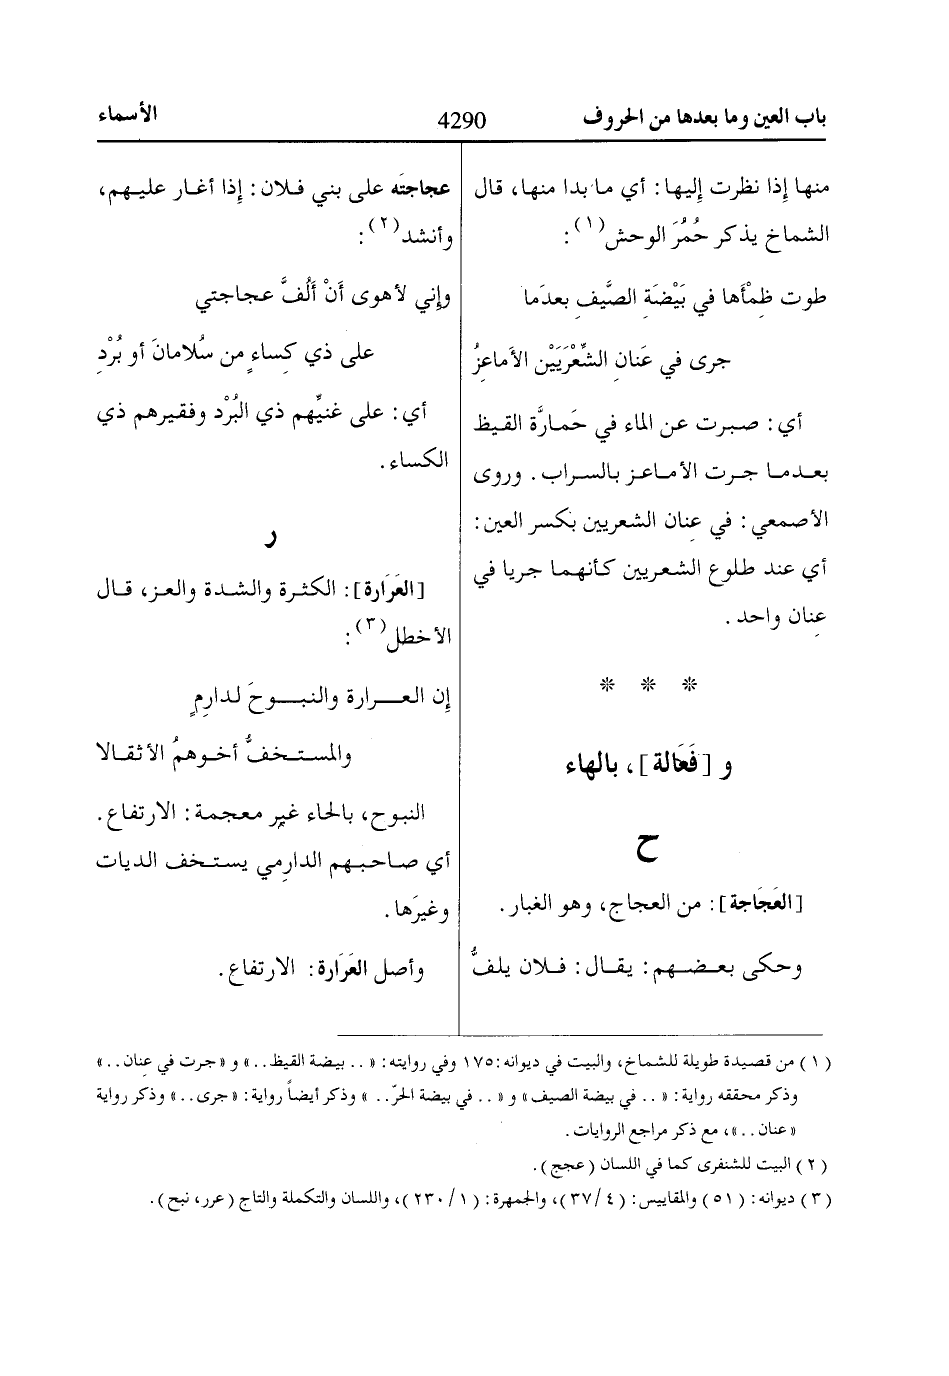 باب العين وما بعدها من الحروف 4290 الأسماء
منها إذا نظرت إليها: أي ما بدا منها، قال
الشماخ يذكر حُمُرَ الوحش(١):
طوت ظِمْأَها في بَيْضَةِ الصَّيفِ بعدَما
جرى في عَنانِ الشِّعْرَيَيْن الأَماعزُ
أي: صبرت عن الماء في حَمارَّة القيظ
بعدما جرت الأماعز بالسراب. وروى
الأصمعي: في عِنان الشعريين بكسر العين:
أي عند طلوع الشعريين كأنهما جريا في
عِنان واحد.
* * *
و [فَعَالة]، بالهاء
ح
[العَجَاجة]: من العجاج، وهو الغبار.
وحكى بعضهم: يقال: فلان يلفُّ
عجاجتَه على بني فلان: إذا أغار عليهم،
وأنشد(٢):
وإني لأهوى أَنْ أَلُفَّ عجاجتي
على ذي كِساءٍ من سُلامانَ أو بُرْدِ
أي: على غنيِّهم ذي البُرْد وفقيرهم ذي
الكساء.
ر
[العَرَارة]: الكثرة والشدة والعز، قال
الأخطل(٣):
إن العرارة والنبوحَ لدارِمٍ
والمستخفُّ أخوهمُ الأثقالا
النبوح، بالحاء غير معجمة: الارتفاع.
أي صاحبهم الدارِمي يستخف الديات
وغيرَها.
وأصل العَرَارة: الارتفاع.
(١) من قصيدة طويلة للشماخ، والبيت في ديوانه: ١٧٥ وفي روايته: «.. بيضة القيظ..» و «جرت في عنان..»
وذكر محققه رواية: «.. في بيضة الصيف» و «.. في بيضة الحرّ..» وذكر أيضاً رواية: «جرى..» وذكر رواية
«عنان..»، مع ذكر مراجع الروايات.
(٢) البيت للشنفرى كما في اللسان (عجج).
(٣) ديوانه: (٥١) والمقاييس: (٤/٣٧)، والجمهرة: (١/٢٣٠)، واللسان والتكملة والتاج (عرر، نبح).